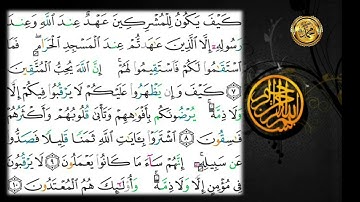 كَيْفَ يَكُونُ لِلْمُشْرِكِينَ عَهْدٌ عِندَ اللَّهِ وَعِندَ
رَسُولِهِ إِلَّا الَّذِينَ عَاهَدتُّمْ عِندَ الْمَسْجِدِ الْحَرَامِ فَمَا
اسْتَقَامُوا لَكُمْ فَاسْتَقِيمُوا لَهُمْ إِنَّ اللَّهَ يُحِبُّ الْمُتَّقِينَ
٧ كَيْفَ وَإِن يَظْهَرُوا عَلَيْكُمْ لَا يَرْقُبُوا فِيكُمْ إِلًّا
وَلَا ذِمَّةً يُرْضُونَكُم بِأَفْوَاهِهِمْ وَتَأْبَى قُلُوبُهُمْ وَأَكْثَرُهُمْ
فَاسِقُونَ ٨ اشْتَرَوْا بِآيَاتِ اللَّهِ ثَمَنًا قَلِيلًا فَصَدُّوا
عَن سَبِيلِهِ إِنَّهُمْ سَاءَ مَا كَانُوا يَعْمَلُونَ ٩ لَا يَرْقُبُونَ
فِي مُؤْمِنٍ إِلًّا وَلَا ذِمَّةً وَأُولَٰئِكَ هُمُ الْمُعْتَدُونَ ١٠